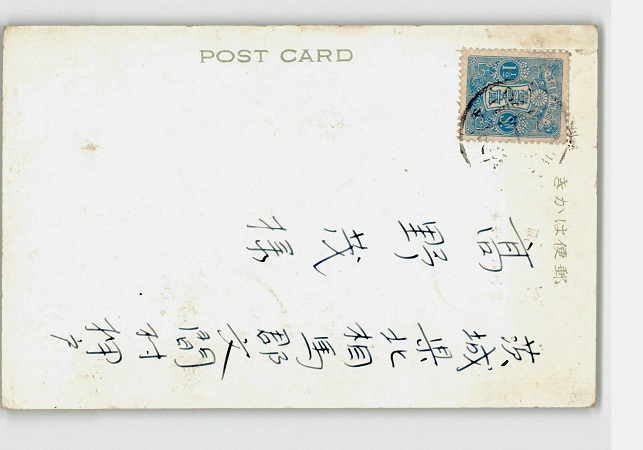 POST CARD
郵便はかき
茨城県北相馬郡文間村押戸
高野茂様